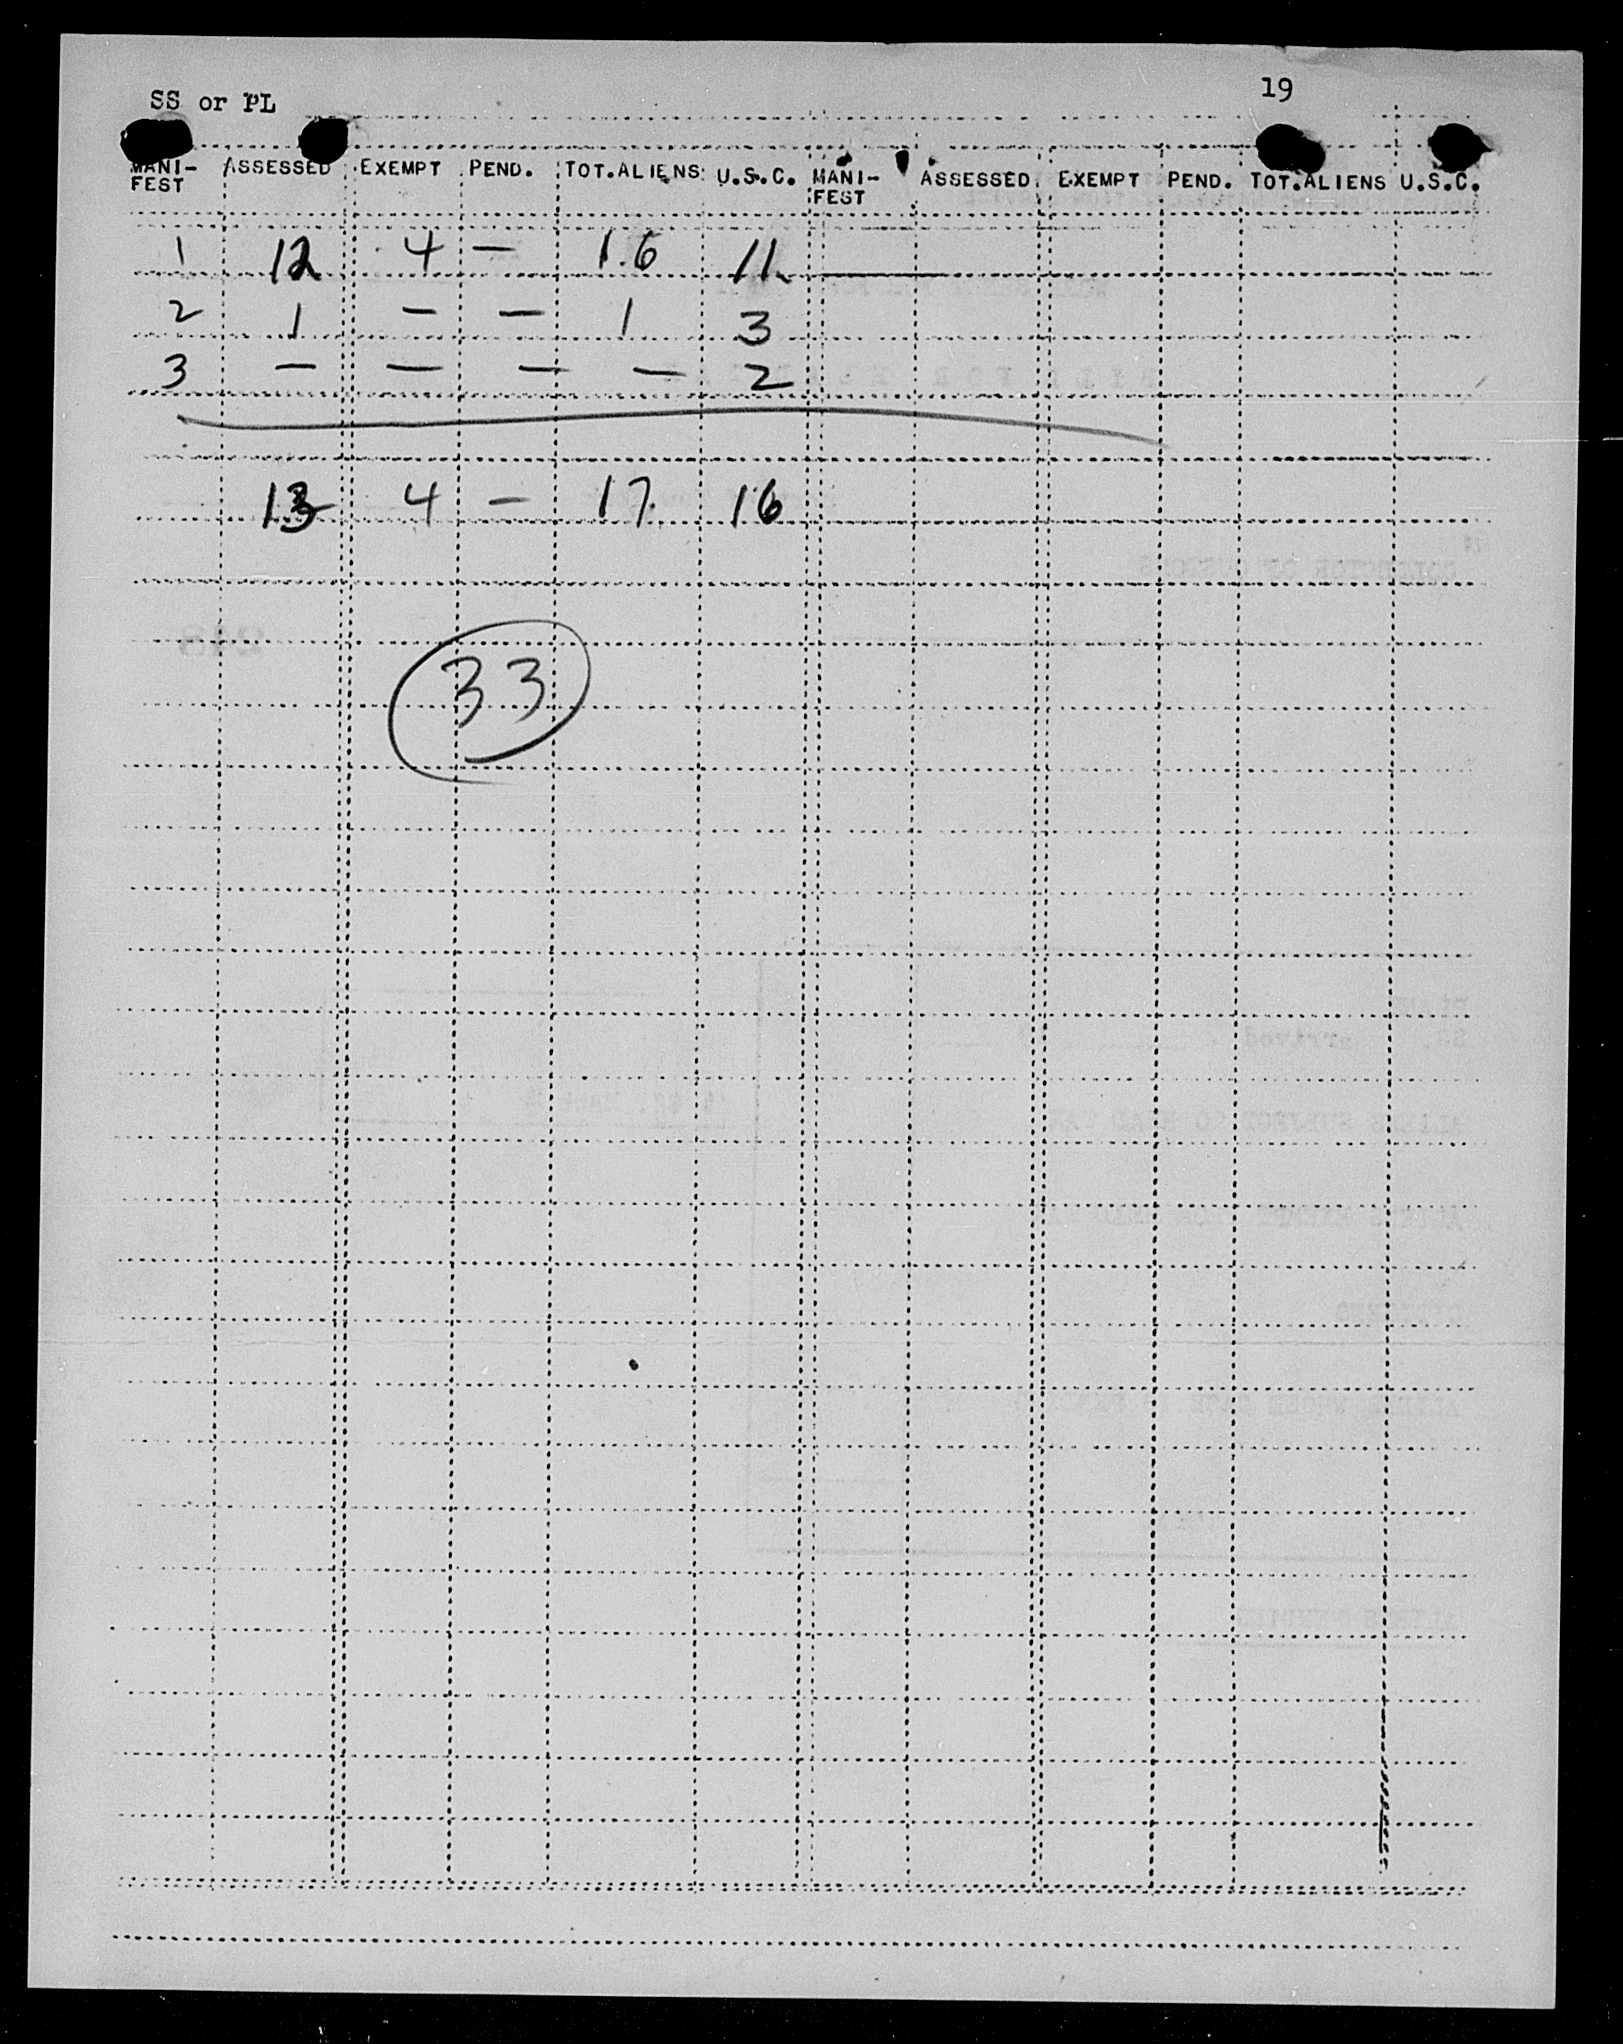 SS or PL 19
MANI-FEST ASSESSED EXEMPT PEND. TOT.ALIENS U.S.C. MANI-FEST ASSESSED EXEMPT PEND. TOT.ALIENS U.S.C.
1 12 4 — 16 11
2 1 — — 1 3
3 — — — — 2
13 4 — 17 16
33